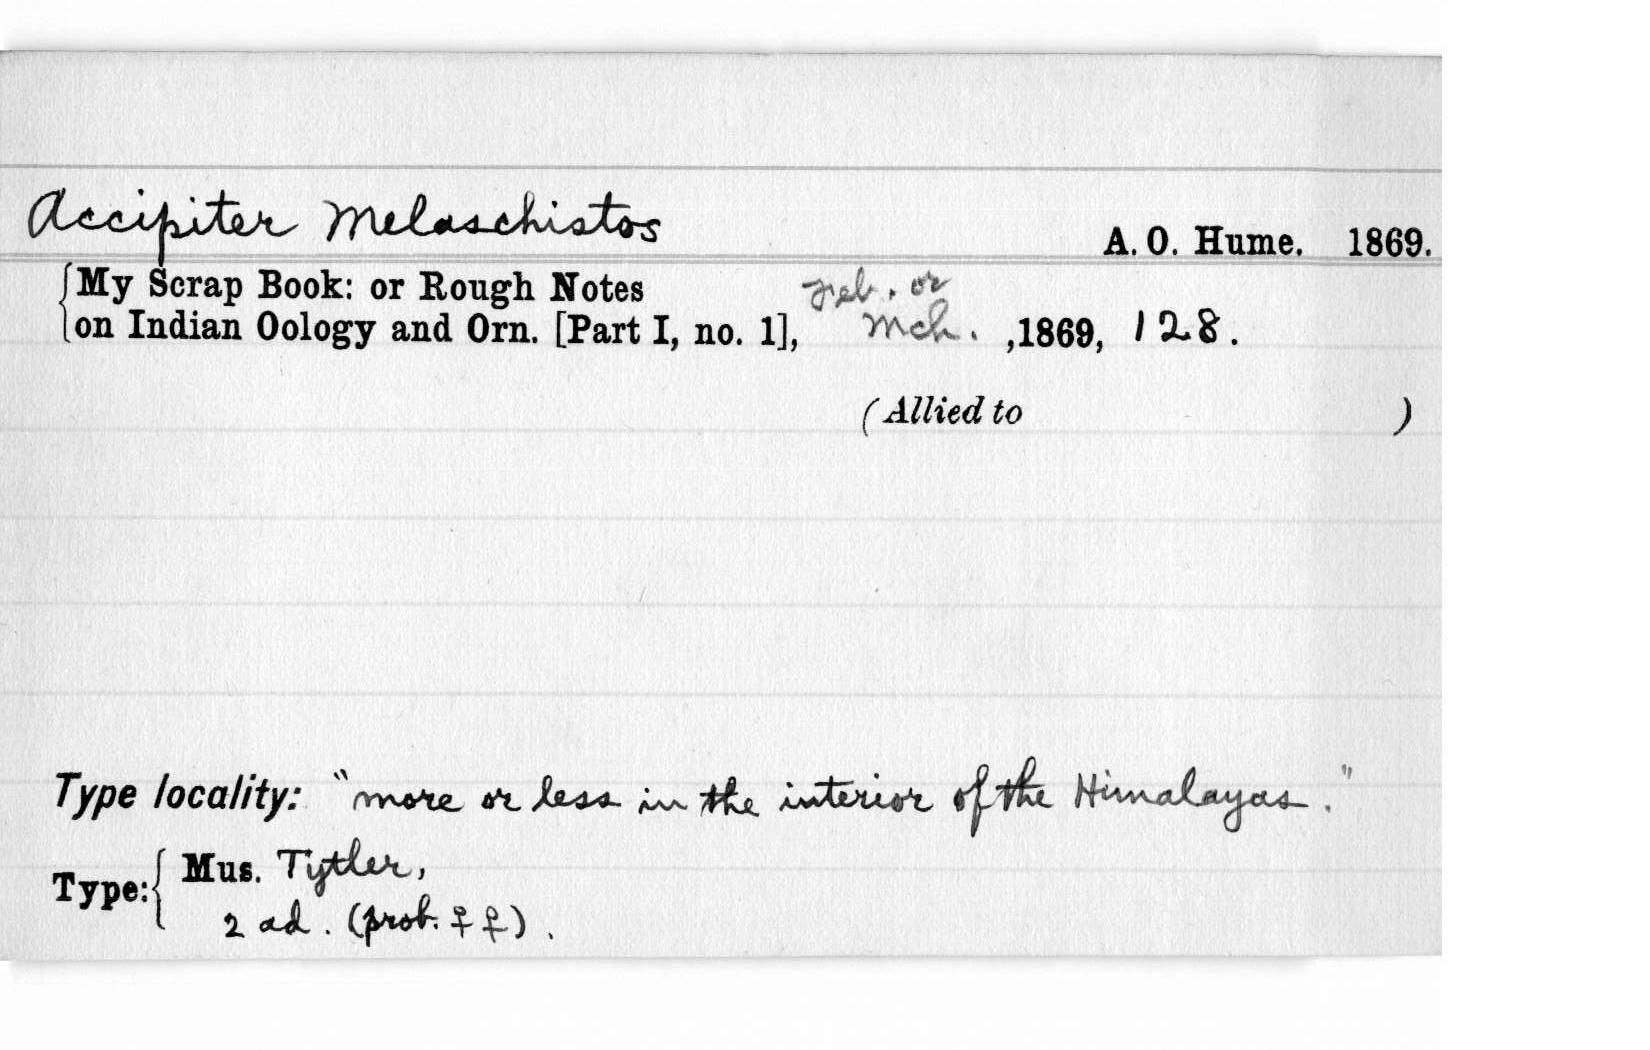 Accipiter Melaschistos A. O. Hume. 1869.
My Scrap Book: or Rough Notes Feb. or
on Indian Oology and Orn. [Part I, no. 1], Mch. ,1869, 128.
(Allied to )
Type locality: "more or less in the interior of the Himalayas."
Type: Mus. Tytler,
2 ad. (prob. ♀♀).